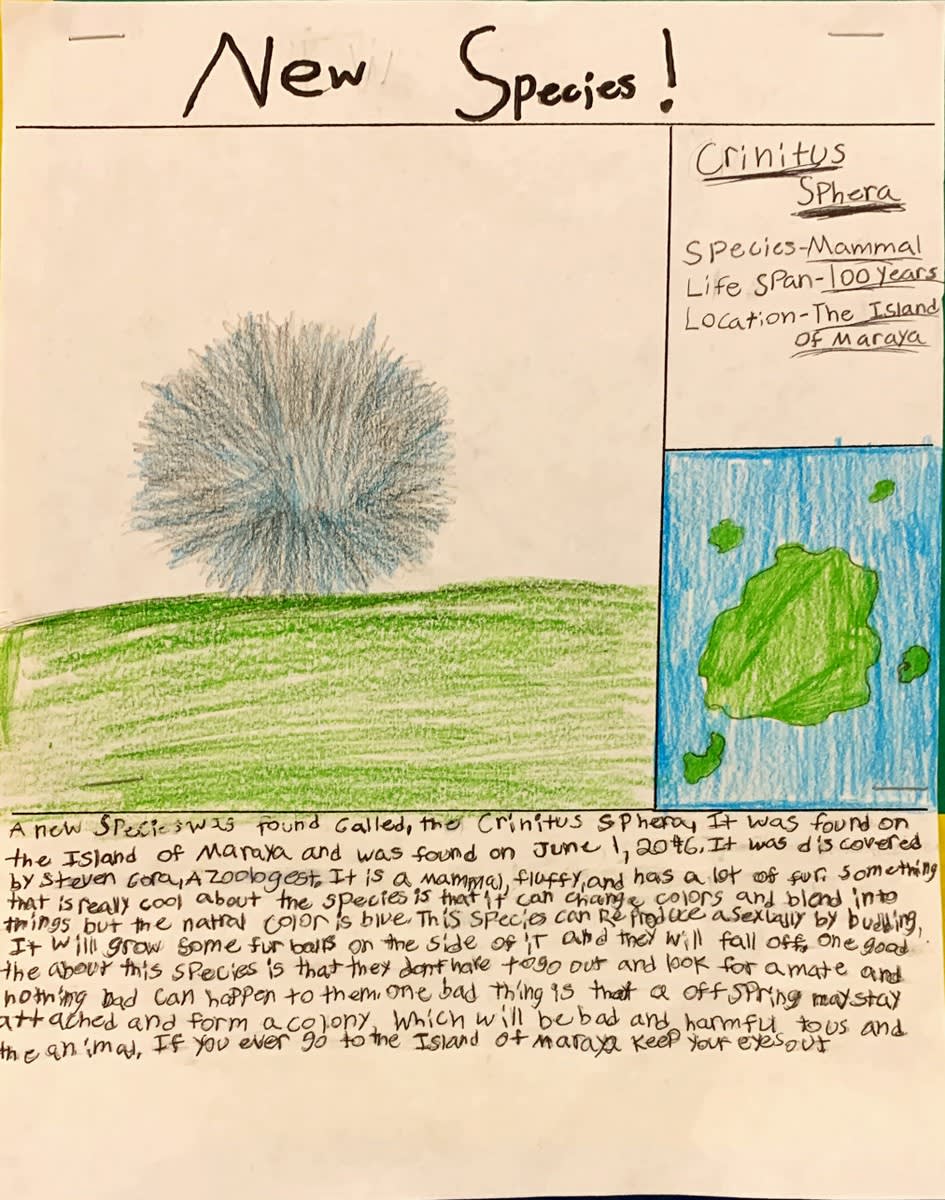 New Species!
Crinitus
Sphera
Species-Mammal
Life Span-100 Years
Location-The Island
of Maraya
A new Species was found called, the Crinitus Sphera, It was found on
the Island of Maraya and was found on June 1, It was discovered
by Steven Gora, A Zoologest. It is a mammal, fluffy, and has a lot of fur. Something
that is really cool about the species is that it can change colors and blend into
things but the natral color is blue. This species can Reproduce asexually by budding,
It will grow some fur balls on the side of it and they will fall off, one good
the about this species is that they dont have to go out and look for a mate and
nothing bad can happen to them. one bad thing is that a offspring may stay
attached and form a colony, which will be bad and harmful to us and
the animal, If you ever go to the Island of Maraya keep your eyes out